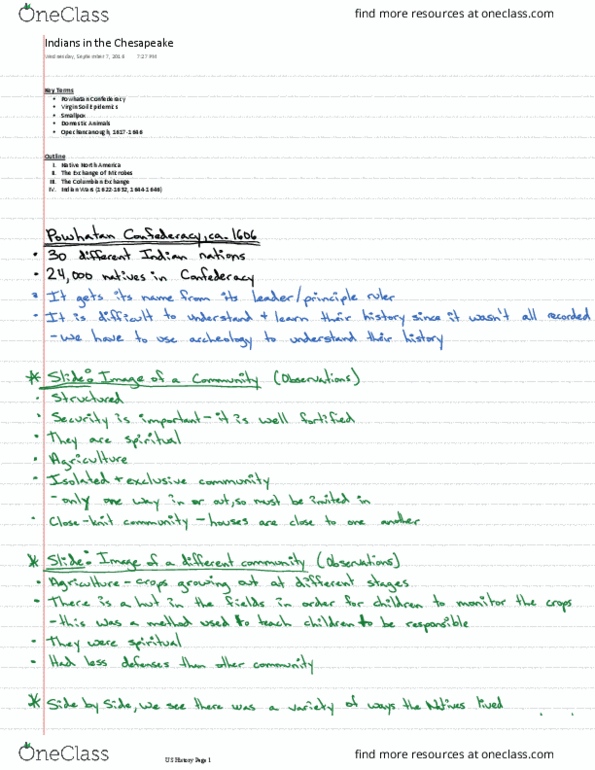 OneClass
find more resources at oneclass.com
Indians in the Chesapeake
Wednesday, September 7, 2016 7:27 PM
Key Terms
• Powhatan Confederacy
• Virgin Soil Epidemics
• Smallpox
• Domestic Animals
• Opechancanough, 1617-1646
Outline
I. Native North America
II. The Exchange of Microbes
III. The Columbian Exchange
IV. Indian Wars (1622-1632, 1644-1646)
Powhatan Confederacy, ca. 1606
• 30 different Indian nations
• 24,000 natives in Confederacy
• It gets its name from its leader/principle ruler
• It is difficult to understand + learn their history since it wasn't all recorded
- we have to use archeology to understand their history
* Slide: Image of a Community (Observations)
• Structured
• Security is important - it is well fortified
• They are spiritual
• Agriculture
• Isolated + exclusive community
- only one way in or out, so must be invited in
• Close-knit community - houses are close to one another
* Slide: Image of a different community (Observations)
• Agriculture - crops growing out at different stages
• There is a hut in the fields in order for children to monitor the crops
- this was a method used to teach children to be responsible
• They were spiritual
• Had less defenses than other community
* Side by Side, we see there was a variety of ways the Natives lived
OneClass
US History Page 1
find more resources at oneclass.com